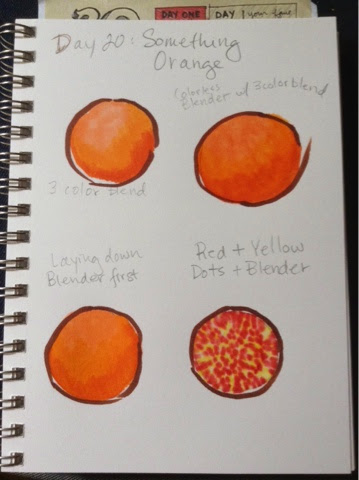 DAY ONE
DAY
your fave
Day 20: Something
Orange
Colorless
Blender w/ 3 color blend
3 color blend
Laying down
Blender first
Red + Yellow
Dots + Blender